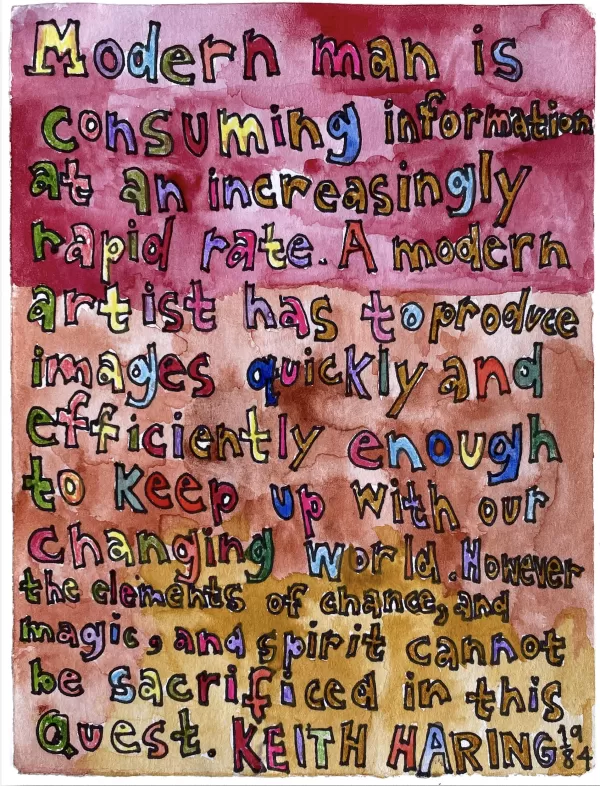 Modern man is
consuming information
at an increasingly
rapid rate. A modern
artist has to produce
images quickly and
efficiently enough
to keep up with our
changing world. However
the elements of chance, and
magic, and spirit cannot
be sacrificed in this
quest. KEITH HARING 1984